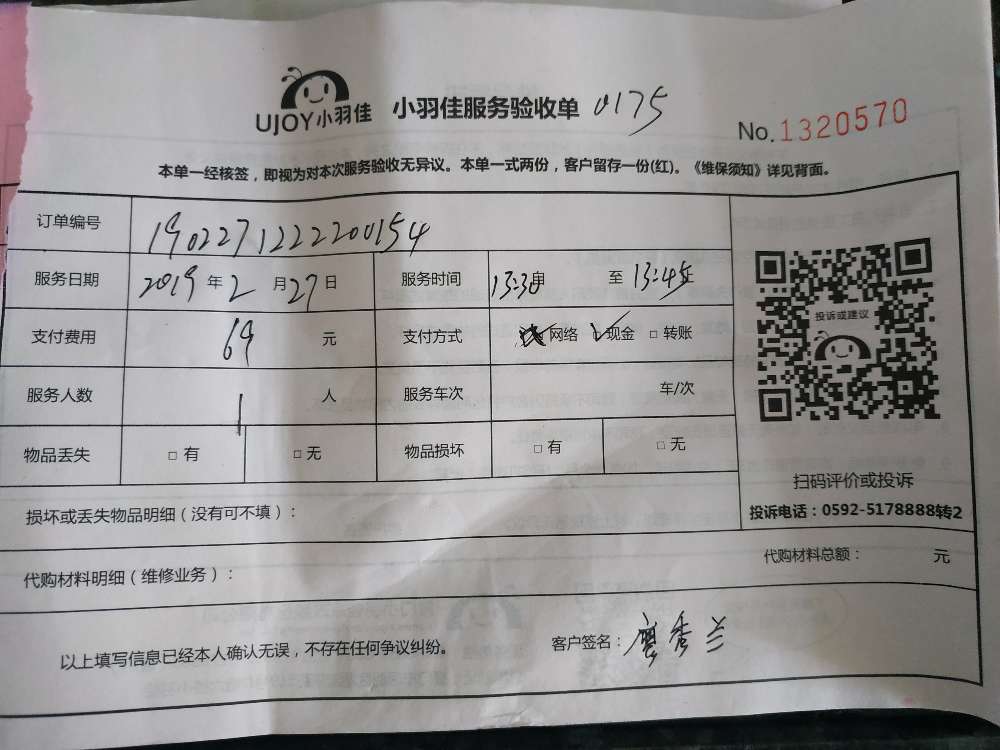 UJOY小羽佳 小羽佳服务验收单 0175
No.1320570
本单一经核签，即视为对本次服务验收无异议。本单一式两份，客户留存一份(红)。《维保须知》详见背面。
订单编号 190227122200154
服务日期 2019 年 2 月 27 日 服务时间 13:30 至 13:45
支付费用 69 元 支付方式 网络 ✓现金 □ 转账
服务人数 1 人 服务车次 车/次
物品丢失 □ 有 □ 无 物品损坏 □ 有 □ 无
投诉或建议
扫码评价或投诉
投诉电话：0592-5178888转2
损坏或丢失物品明细（没有可不填）：
代购材料明细（维修业务）： 代购材料总额： 元
以上填写信息已经本人确认无误，不存在任何争议纠纷。 客户签名：廖秀兰